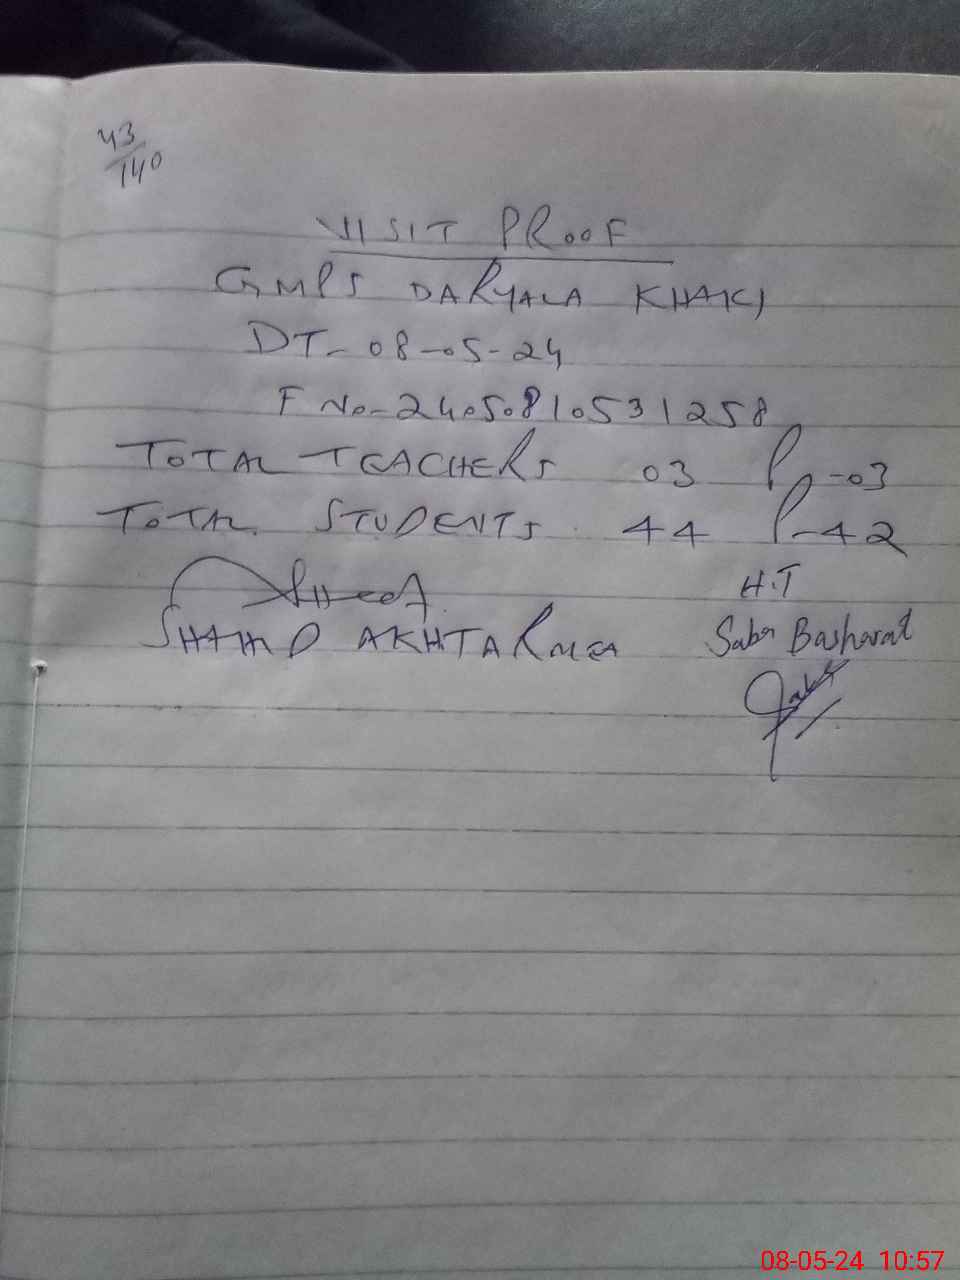 43/140
VISIT PROOF
GMPS DARYALA KHAKI
DT- 08-05-24
F No- 2405081053 1258
TOTAL TEACHERS 03 P-03
TOTAL STUDENTS 44 P-42
H.T
SHAHID AKHTAR MEA Saba Basharat
08-05-24 10:57